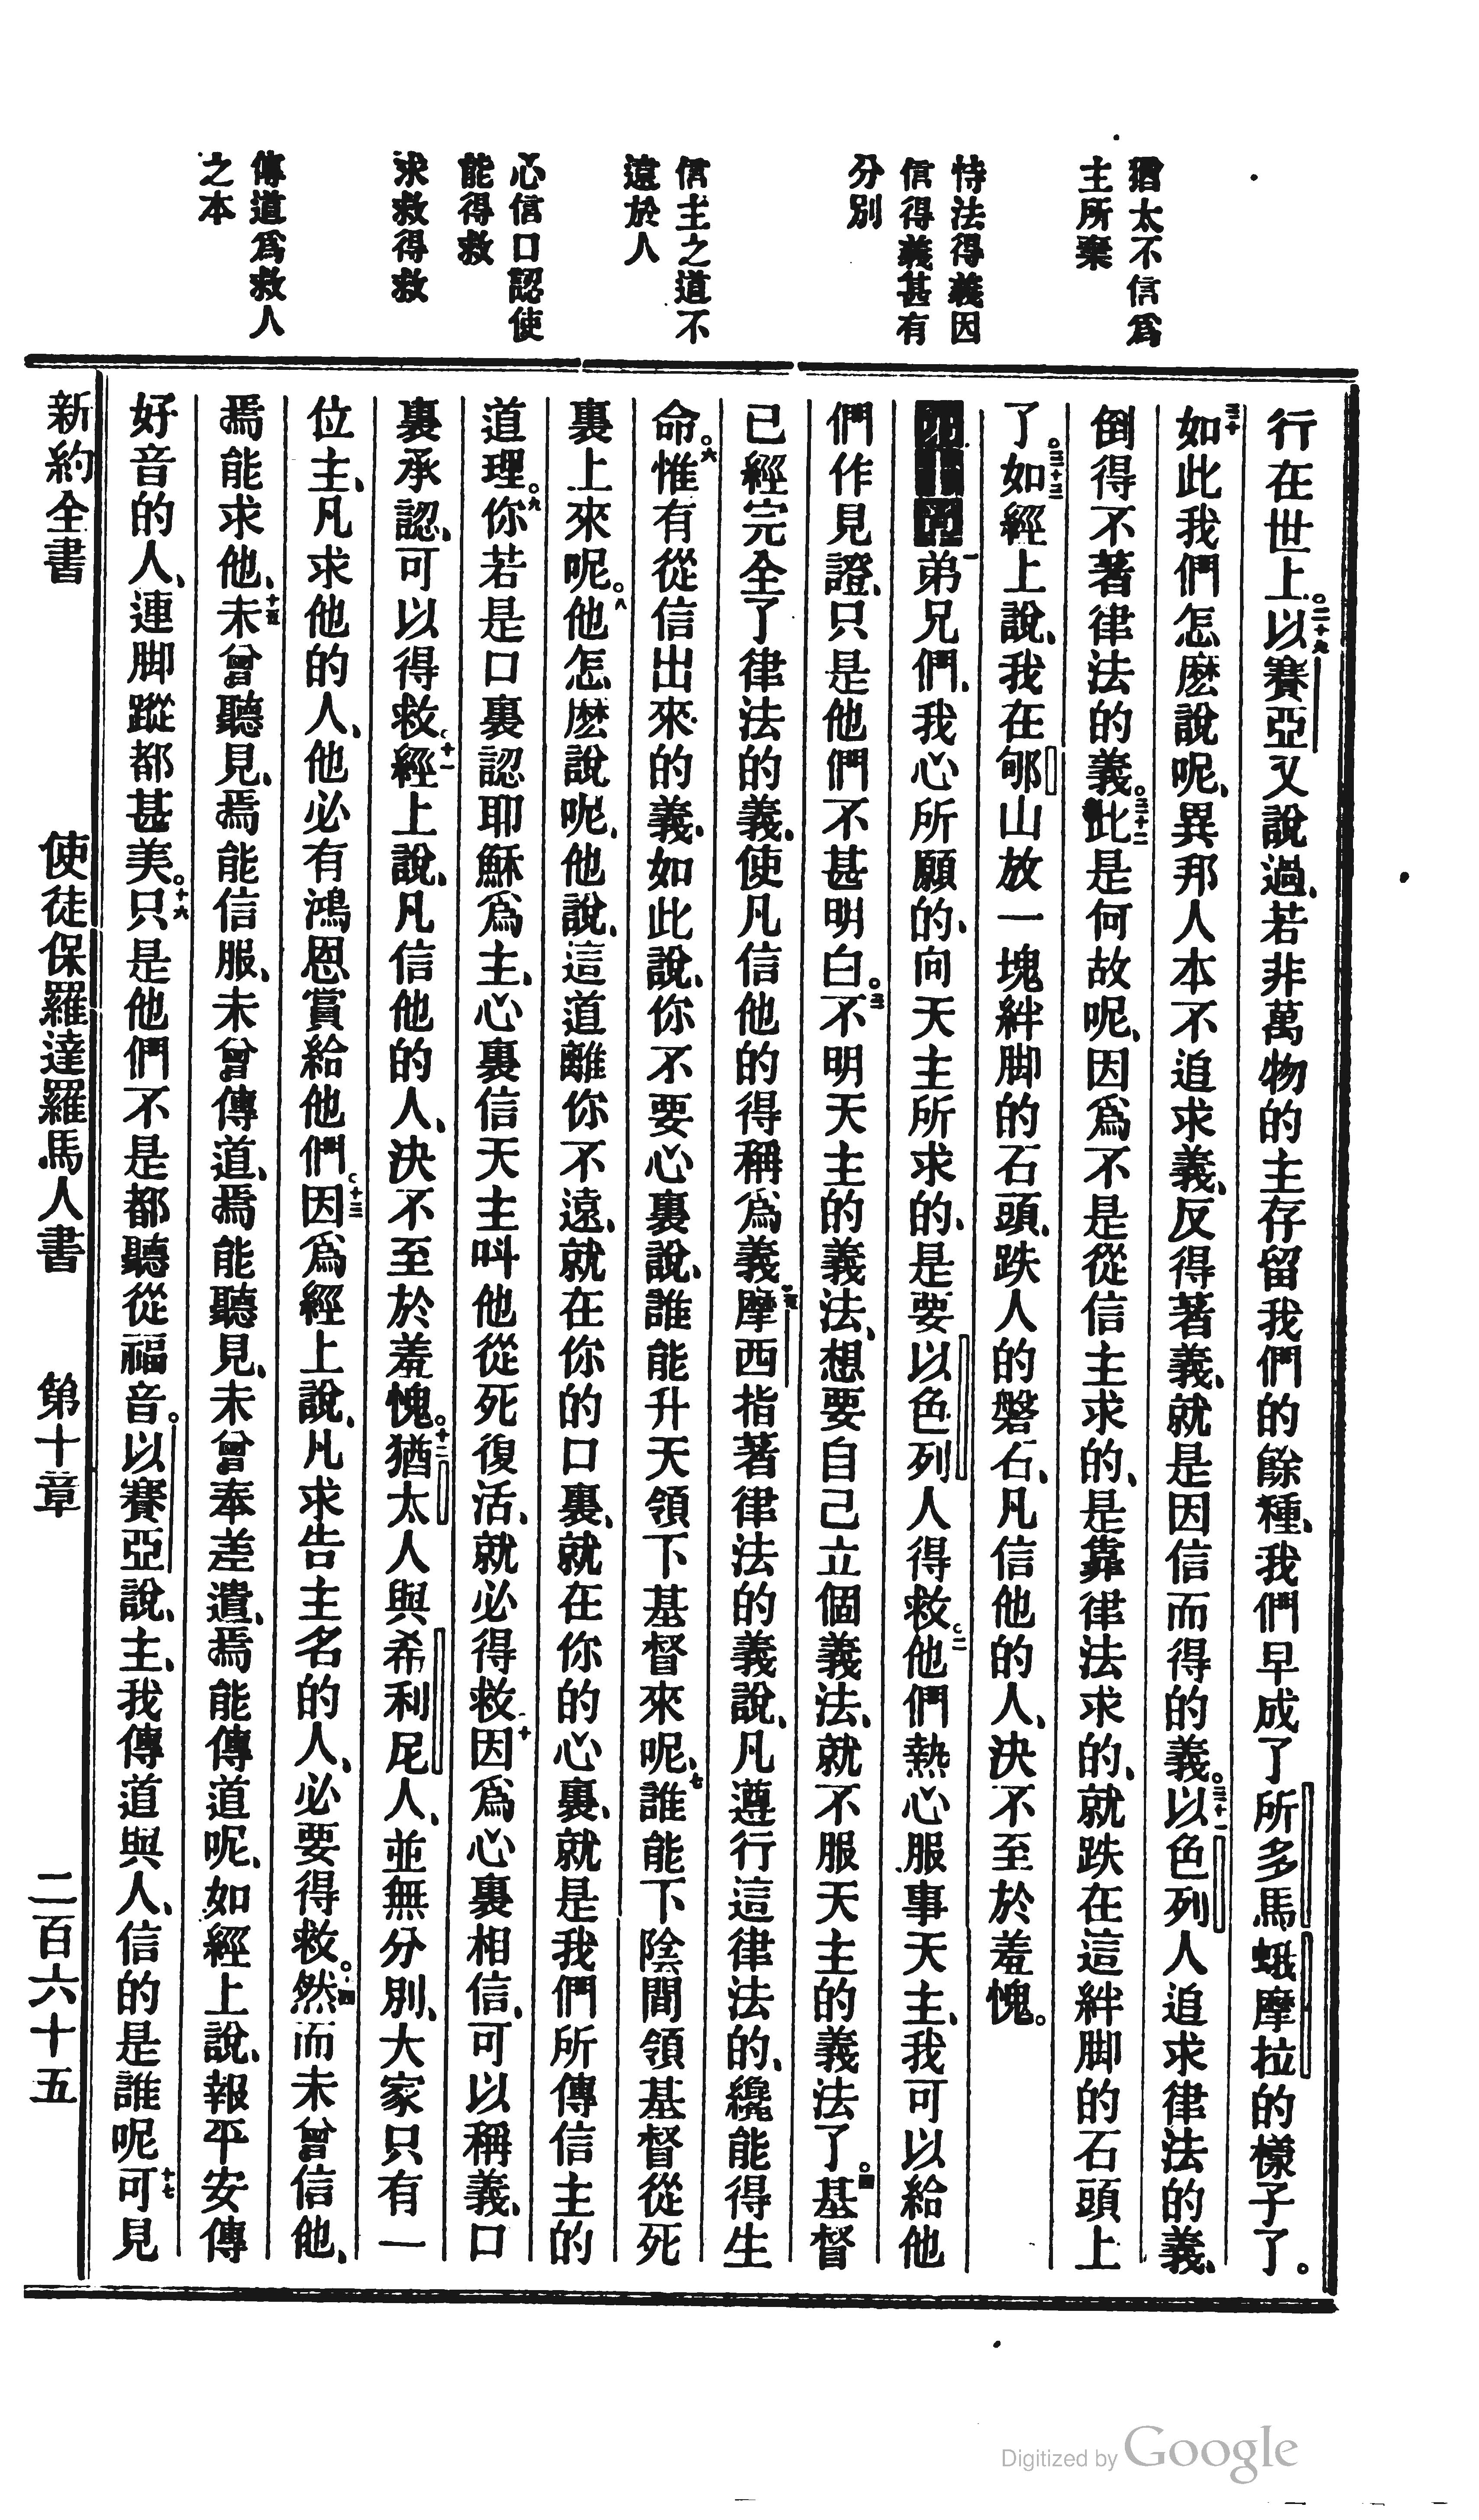 猶太不信爲
主所棄
恃法得義因
信得義甚有
分別
信主之道不
遠於人
心信口認使
能得救
求救得救
傳道爲救人
之本
行在世上。二十九以賽亞又說過、若非萬物的主存留我們的餘種、我們早成了所多馬蛾摩拉的樣子了。
三十如此我們怎麽說呢、異邦人本不追求義、反得著義、就是因信而得的義。三十一以色列人追求律法的義、
倒得不著律法的義。三十二此是何故呢、因爲不是從信主求的、是靠律法求的、就跌在這絆脚的石頭上
了。三十三如經上說、我在郇山放一塊絆脚的石頭、跌人的磐石、凡信他的人、決不至於羞愧。
一弟兄們、我心所願的、向天主所求的、是要以色列人得救。二他們熱心服事天主、我可以給他
們作見證、只是他們不甚明白。三不明天主的義法、想要自己立個義法、就不服天主的義法了。四基督
已經完全了律法的義、使凡信他的得稱爲義。五摩西指著律法的義說、凡遵行這律法的、纔能得生
命。六惟有從信出來的義、如此說、你不要心裏說、誰能升天領下基督來呢、七誰能下陰間領基督從死
裏上來呢。八他怎麽說呢、他說、這道離你不遠、就在你的口裏、就在你的心裏、就是我們所傳信主的
道理。九你若是口裏認耶穌爲主、心裏信天主呌他從死復活、就必得救。十因爲心裏相信、可以稱義、口
裏承認、可以得救。十一經上說、凡信他的人、決不至於羞愧。十二猶太人與希利尼人、並無分別、大家只有一
位主、凡求他的人、他必有鴻恩賞給他們。十三因爲經上說、凡求告主名的人、必要得救。十四然而未曾信他、
焉能求他、十五未曾聽見、焉能信服、未曾傳道、焉能聽見、未曾奉差遣、焉能傳道呢、如經上說、報平安傳
好音的人、連脚蹤都甚美。十六只是他們不是都聽從福音。以賽亞說、主、我傳道與人、信的是誰呢十七可見
新約全書　使徒保羅達羅馬人書　第十章　二百六十五
Digitized by Google